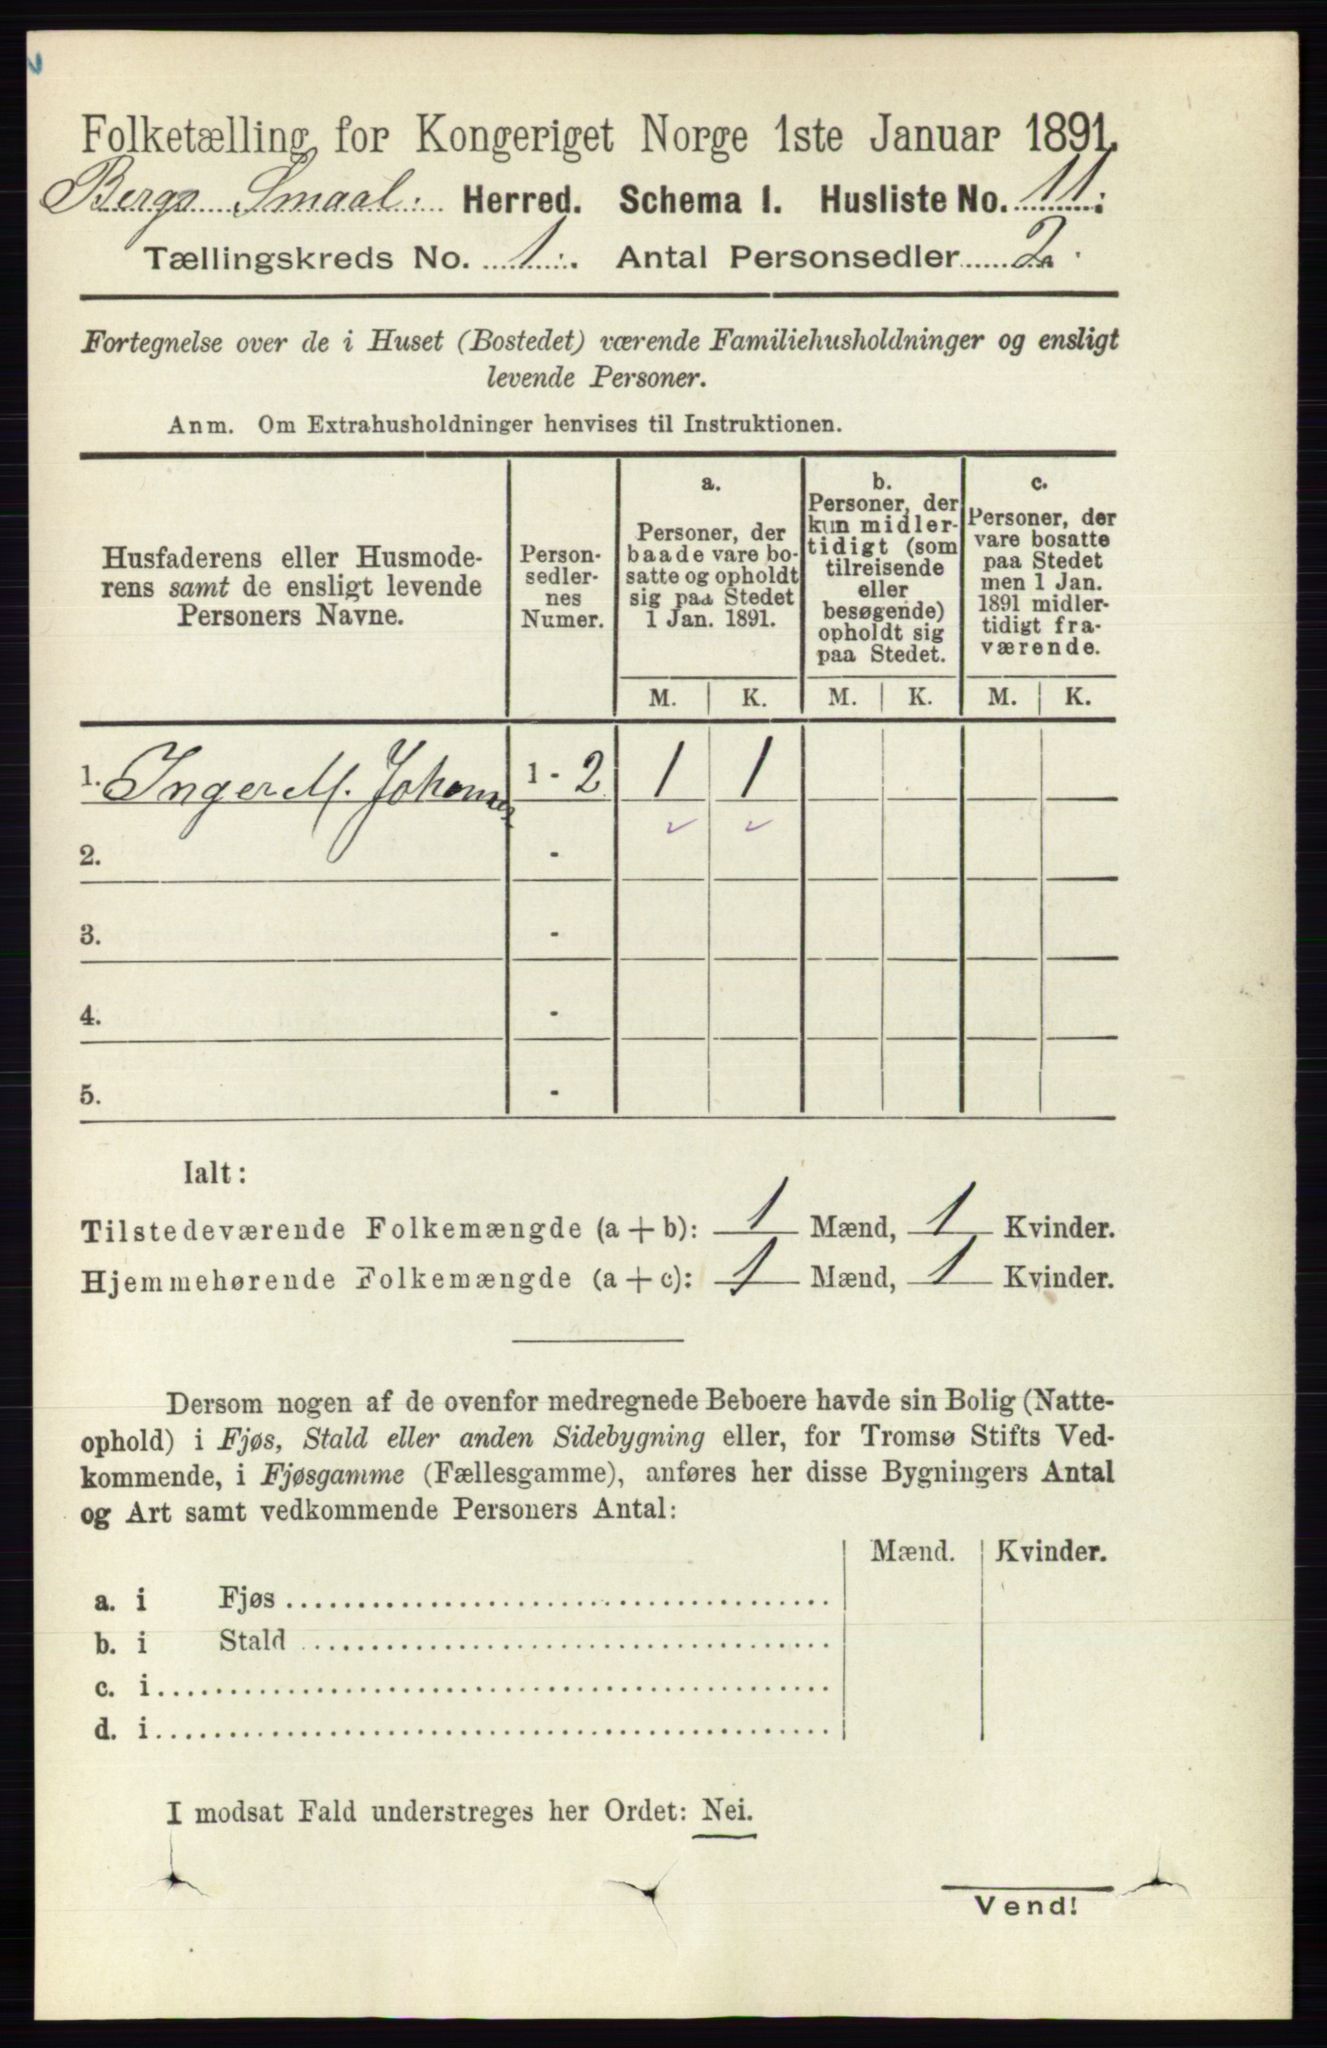 Folketælling for Kongeriget Norge 1ste Januar 1891.
Bergs Smaal. Herred. Schema I. Husliste No. 11.
Tællingskreds No. 1. Antal Personsedler 2.
Fortegnelse over de i Huset (Bostedet) værende Familiehusholdninger og ensligt
levende Personer.
Anm. Om Extrahusholdninger henvises til Instruktionen.
Husfaderens eller Husmode-
rens samt de ensligt levende
Personers Navne.
Person-
sedler-
nes
Numer.
a.
Personer, der
baade vare bo-
satte og opholdt
sig paa Stedet
1 Jan. 1891.
b.
Personer, der
kun midler-
tidigt (som
tilreisende
eller
besøgende)
opholdt sig
paa Stedet.
c.
Personer, der
vare bosatte
paa Stedet
men 1 Jan.
1891 midler-
tidigt fra-
værende.
M. K. M. K. M. K.
1. Inger M. 1 - 2 1 1
2. -
3. -
4. -
5. -
Ialt:
Tilstedeværende Folkemængde (a + b): 1 Mænd, 1 Kvinder.
Hjemmehørende Folkemængde (a + c): 1 Mænd, 1 Kvinder.
Dersom nogen af de ovenfor medregnede Beboere havde sin Bolig (Natte-
ophold) i Fjøs, Stald eller anden Sidebygning eller, for Tromsø Stifts Ved-
kommende, i Fjøsgamme (Fællesgamme), anføres her disse Bygningers Antal
og Art samt vedkommende Personers Antal:
Mænd. Kvinder.
a. i Fjøs
b. i Stald
c. i
d. i
I modsat Fald understreges her Ordet: Nei.
Vend!